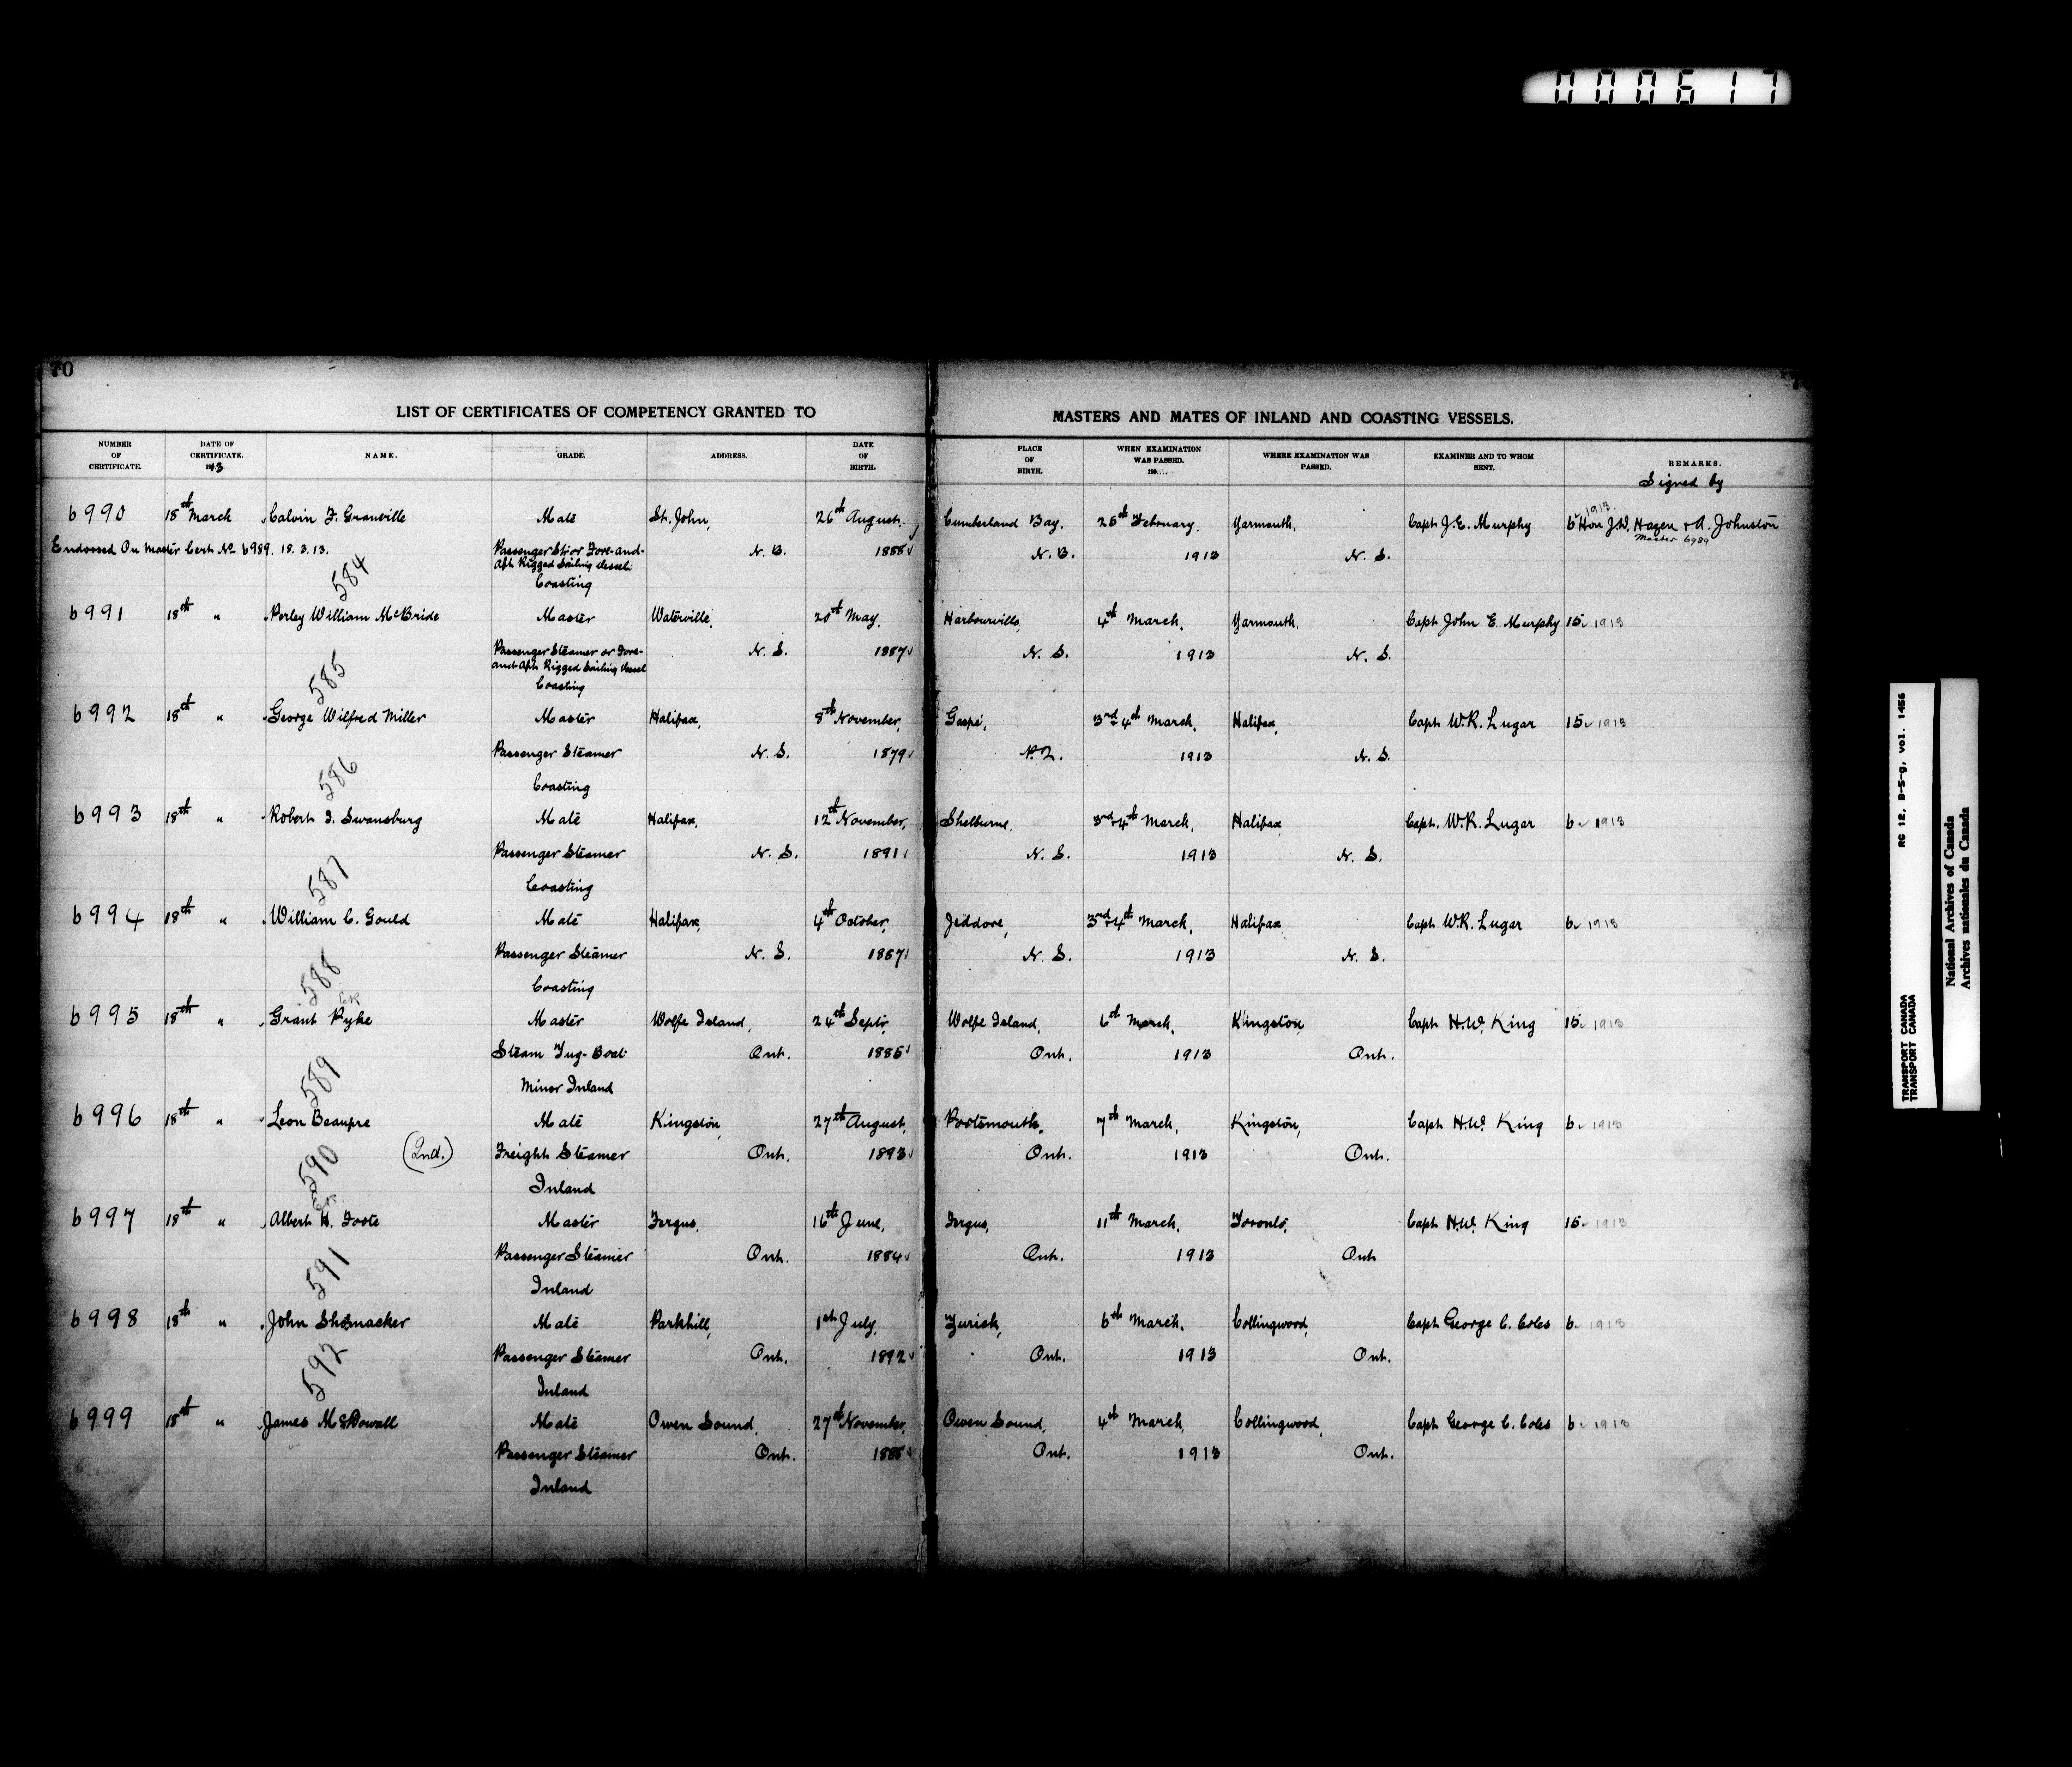 000617
70
LIST OF CERTIFICATES OF COMPETENCY GRANTED TO MASTERS AND MATES OF INLAND AND COASTING VESSELS.
NUMBER OF CERTIFICATE. DATE OF CERTIFICATE. 1913 NAME. GRADE. ADDRESS. DATE OF BIRTH. PLACE OF BIRTH. WHEN EXAMINATION WAS PASSED. 190.... WHERE EXAMINATION WAS PASSED. EXAMINER AND TO WHOM SENT. REMARKS.
Signed by
6990 18th March Calvin F. Granville Mate St. John, 26th August, Cumberland Bay, 25th February. Yarmouth, Capt J.E. Murphy 6 1913 Hon J.W. Hazen + A. Johnston
Master 6989
Endorsed On Master Cert No 6989. 18.3.13. Passenger Str or Fore-and- N. B. 1888 N. B. 1913 N. S.
Aft Rigged Sailing Vessel
584 Coasting
6991 18th " Perley William McBride Master Waterville, 20th May, Harbourville, 4th March, Yarmouth, Capt John E. Murphy 15 1913
Passenger Steamer or Fore- N. S. 1887 N. S. 1913 N. S.
and Aft Rigged Sailing Vessel
585 Coasting
6992 18th " George Wilfred Miller Master Halifax, 8th November, Gaspé, 3rd & 4th March, Halifax, Capt W.R. Lugar 15 1913
Passenger Steamer N. S. 1879 P.Q. 1913 N. S.
586 Coasting
6993 18th " Robert I. Swansburg Mate Halifax, 12th November, Shelburne, 3rd & 4th March, Halifax, Capt. W.R. Lugar 6 1913
Passenger Steamer N. S. 1891 N. S. 1913 N. S.
587 Coasting
6994 18th " William C. Gould Mate Halifax, 4th October, Jeddore, 3rd & 4th March, Halifax Capt W.R. Lugar 6 1913
Passenger Steamer N. S. 1887 N. S. 1913 N. S.
588 Coasting
6995 18th " Grant Pyke Master Wolfe Island, 24th Septr, Wolfe Island, 6th March, Kingston, Capt H.W. King 15 1913
Steam Tug-Boat Ont. 1885 Ont. 1913 Ont.
589 Minor Inland
6996 18th " Leon Beaupre Mate Kingston, 27th August, Portsmouth, 7th March, Kingston, Capt H.W. King 6 1913
(2nd.) Freight Steamer Ont. 1893 Ont. 1913 Ont.
590 Inland
6997 18th " Albert H. Foote Master Fergus, 16th June, Fergus, 11th March, Toronto, Capt H.W. King 15 1913
Passenger Steamer Ont. 1884 Ont. 1913 Ont
591 Inland
6998 18th " John Shomacker Mate Parkhill, 1st July, Zurich, 6th March, Collingwood, Capt George C. Coles 6 1913
Passenger Steamer Ont. 1892 Ont. 1913 Ont.
592 Inland
6999 18th " James McDowall Mate Owen Sound, 27th November, Owen Sound, 4th March, Collingwood, Capt George C. Coles 6 1913
Passenger Steamer Ont. 1885 Ont. 1913 Ont.
Inland
TRANSPORT CANADA RG 12, B-5-g, vol. 1456
TRANSPORT CANADA
National Archives of Canada
Archives nationales du Canada